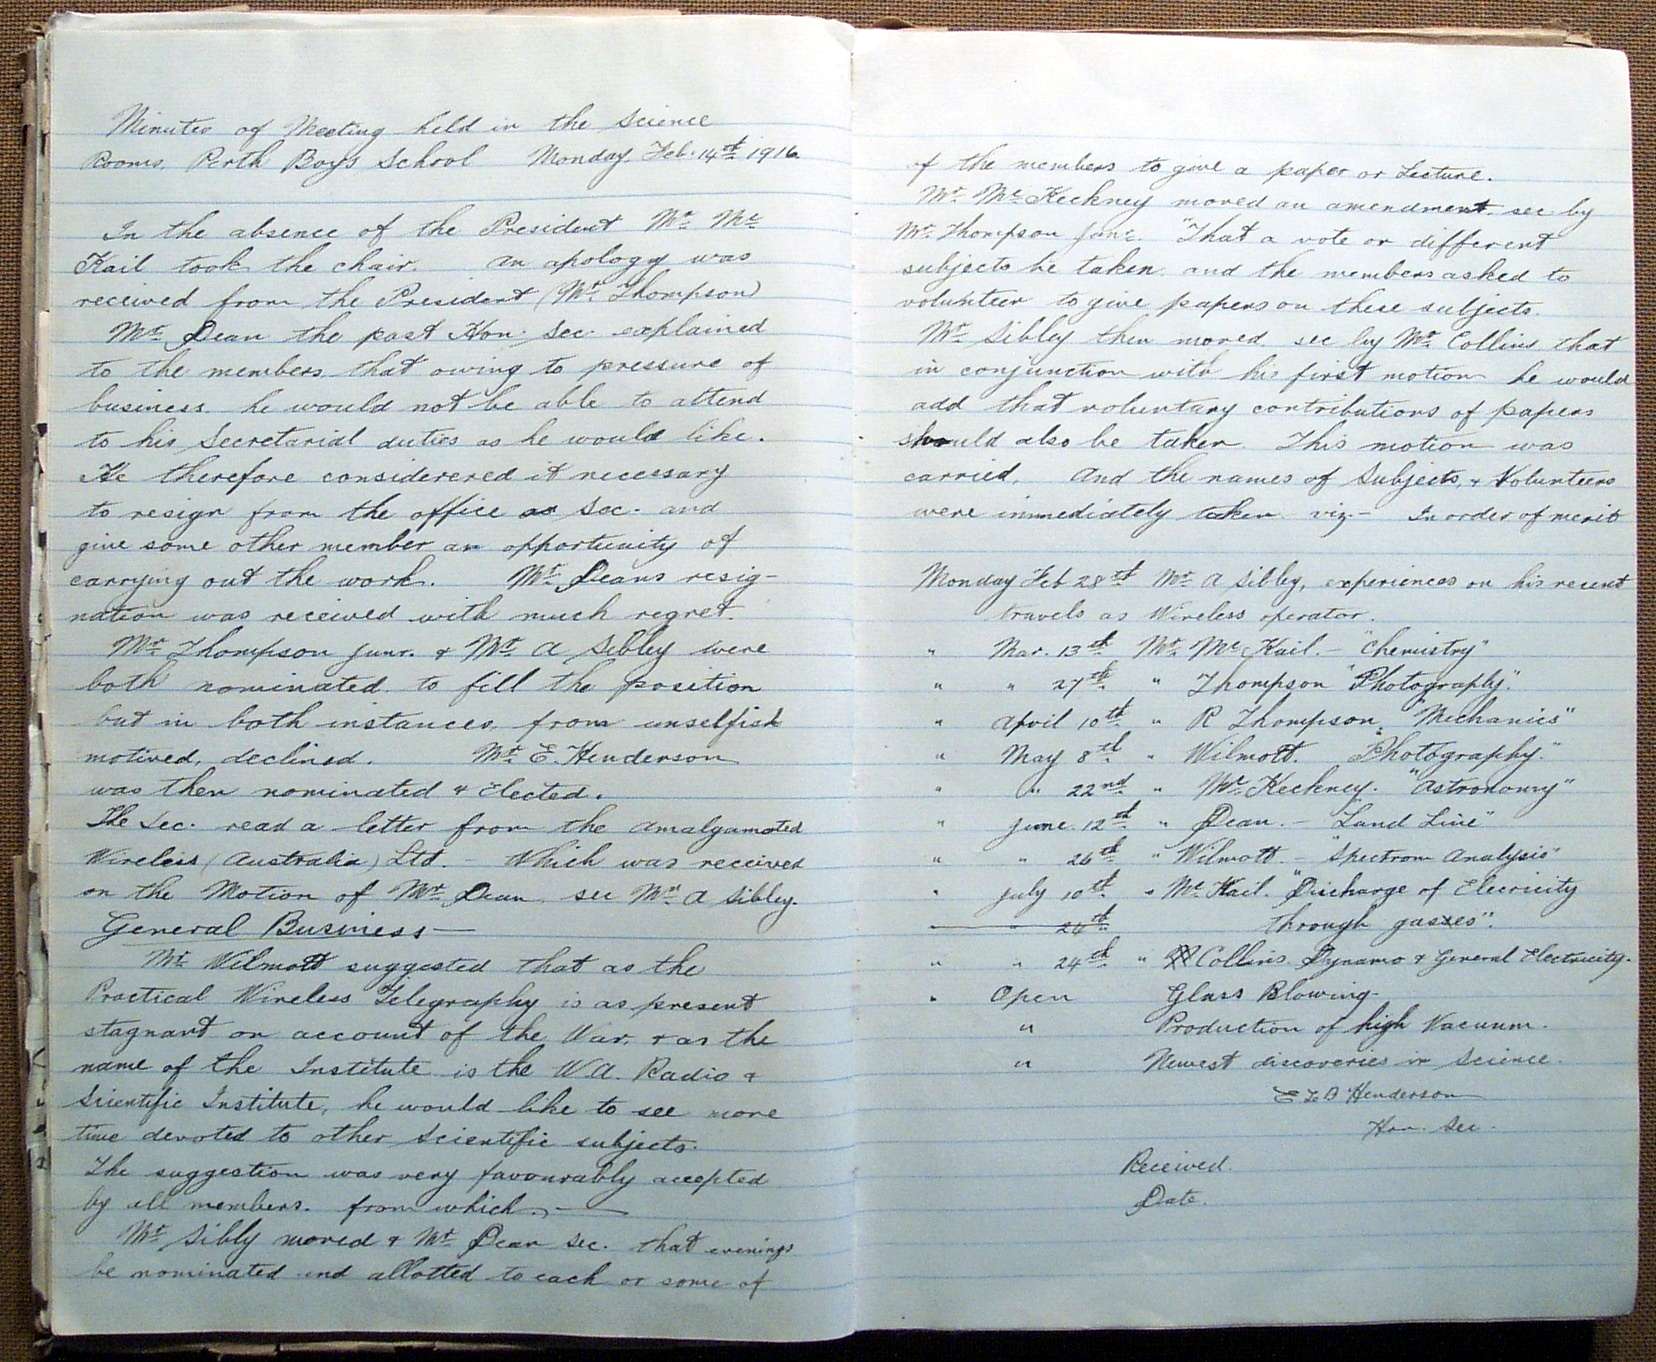 Minutes of Meeting held in the Science
Rooms, Perth Boys School Monday Feb. 14th 1916
In the absence of the President Mr Mc
Kail took the chair. An apology was
received from the President (Mr Thompson)
Mr Dean the past Hon. Sec. explained
to the members, that owing to pressure of
business he would not be able to attend
to his Secretarial duties as he would like.
He therefore considerered it necessary
to resign from the office as Sec. and
give some other member an opportunity of
carrying out the work. Mr Deans resig-
nation was received with much regret.
Mr Thompson junr. & Mr A Sibley were
both nominated to fill the position
but in both instances, from unselfish
motived, declined. Mr E. Henderson
was then nominated & Elected.
The Sec. read a letter from the Amalgamated
Wireless (Australia) Ltd. - Which was received
on the Motion of Mr Dean sec Mr A Sibley.
General Business—
Mr Wilmott suggested that as the
Practical Wireless Telegraphy is as present
stagnant on account of the War, & as the
name of the Institute is the W.A. Radio &
Scientific Institute, he would like to see more
time devoted to other Scientific subjects.
The suggestion was very favourably accepted
by all members. from which. —
Mr Sibly moved & Mr Dean sec. that evenings
be nominated and allotted to each or some of
of the members to give a paper or Lecture.
Mr McKeckney moved an amendment. sec by
Mr Thompson Junr. "That a vote or different
subjects be taken and the members asked to
volunteer to give papers on these subjects.
Mr Sibley then moved sec by Mr Collins that
in conjunction with his first motion he would
add that voluntary contributions of papers
should also be taken This motion was
carried. And the names of Subjects, & Volunteers
were immediately taken viz- In order of merit
Monday Feb 28th Mr A Sibley, experiences on his recent
travels as Wireless operator.
" Mar. 13th Mr McKail. - "Chemistry"
" " 27th " Thompson "Photography".
" April 10th " R Thompson "Mechanics"
" May 8th " Wilmott. "Photography."
" " 22nd " McKeckney. "Astronomy"
" June 12th " Dean. - "Land Line"
" " 26th " Wilmott. - "Spectrom Analysis"
" July 10th " McKail. "Discharge of Elecricity
" " 24th through gasses".
" " 24th " Collins Dynamo & General Electricity.
" Open Glass Blowing-
" Production of high Vacuum.
" Newest discoveries in Science.
E L B Henderson
Hon. Sec.
Received.
Date.